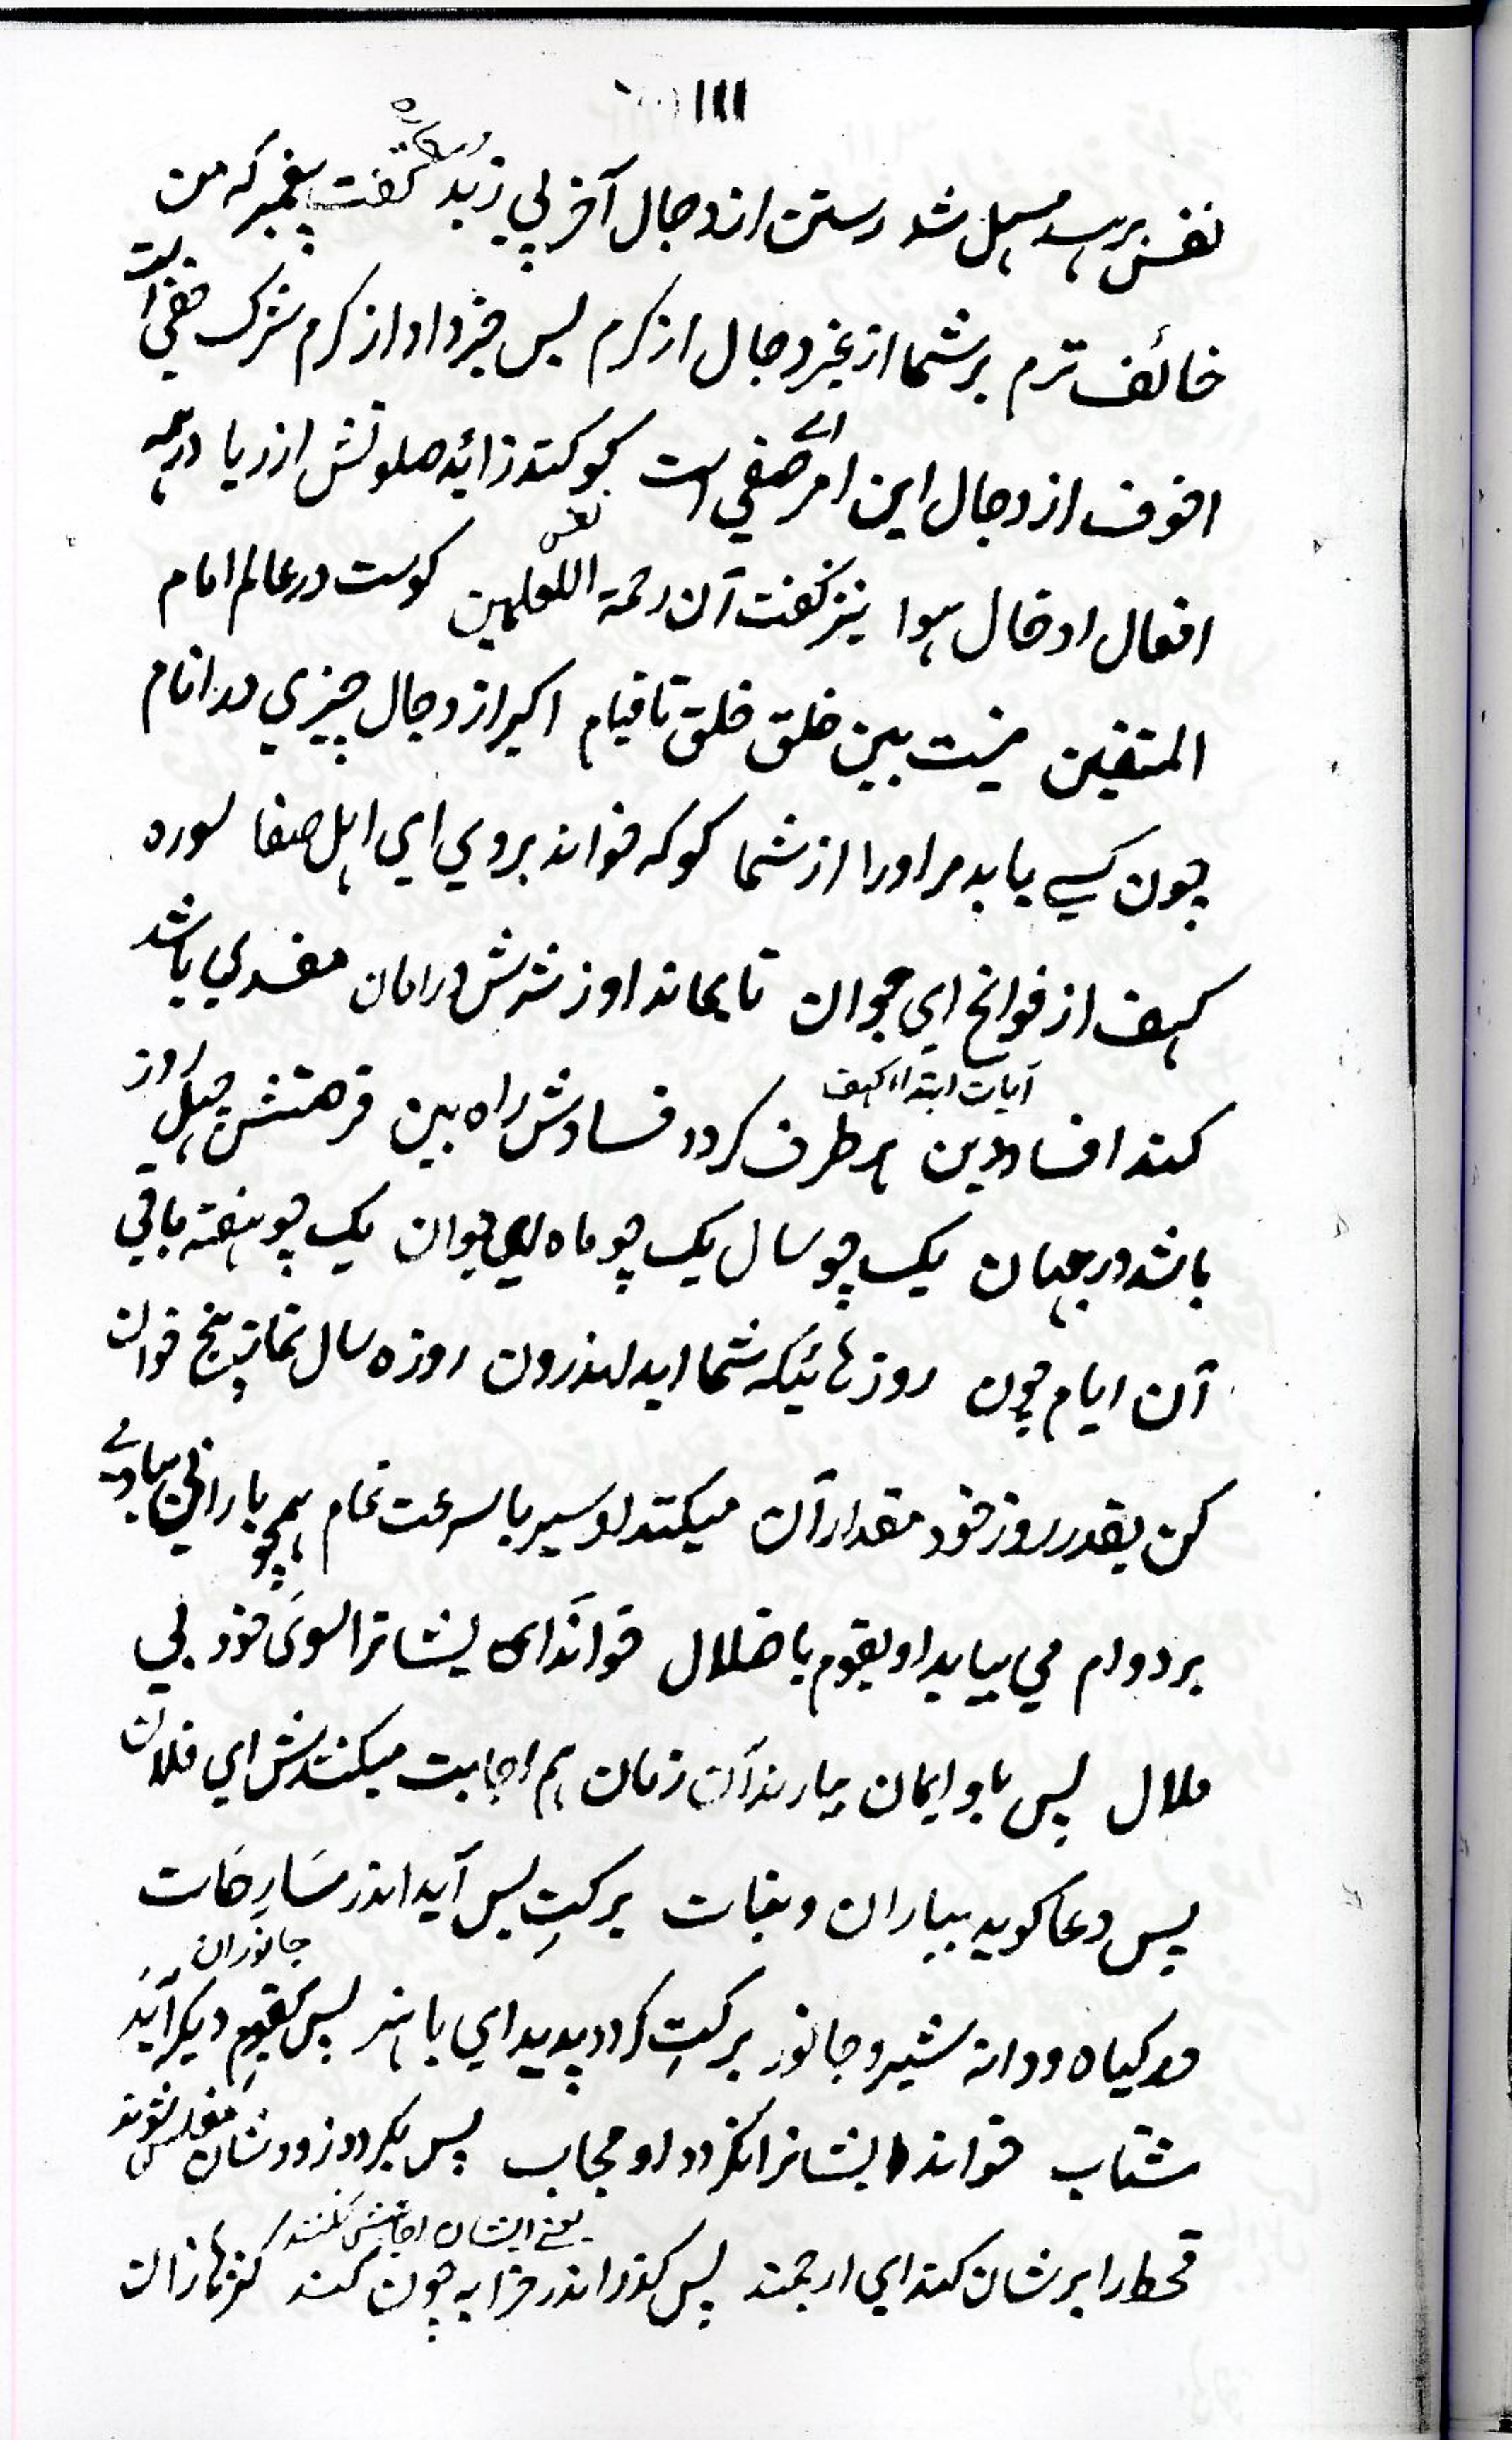 ١١١
نفس بربسد مسهل شد رستن از دجال آخر پی زبد گفت پیغمبر که من
خائف ترم بر شما از غیر دجال از کرم پس خبر داد از کرم شرک خفی است
اخوف از دجال این امر خفی است کو کند زائد صلوتش از ریا در همه
افعال ادخال هوا نیز گفت آن رحمة اللعلمین کوست در عالم امام
المتقین نیست بین خلق خلق تا قیام اکبر از دجال چیزی در انام
چون کسے یابد مر اورا از شما کو که خواند بروی ای اهل صفا سوره
کهف از فواتح ای جوان تا بماند او ز شرش در امان مفسدی باشد
آیات ابتداء کهف
کند افساد دین هر طرف گردد فسادش راه بین فرصتش چهل روز
باشد در جهان یک چو سال یک چو ماه ای جوان یک چو هفته باقی
آن ایام چون روزهائیکه شما اید اندرون روزه سال نماز پنج خوان
کن بقدر روز خود مقدار آن میکند او سیر با سرعت تمام همچو بارانی بادے
بر دوام می بیاید او بقوم با ضلال خواند ای ایشانرا بسوی خود بی
ملال پس باو ایمان بیارند آن زمان هم اجابت میکنندش ای فلان
پس دعا گوید بباران و نبات برکت پس آید اندر سارحات
جانوران
در گیاه و دانه شیر و جانور برکت گردد پدید ای با هنر پس بقوم دیگر آید
شتاب خواند ایشانرا نگردد او مجاب پس بگردد زود شان مفلس شوند
یعنے ایشان اجابتش نکنند
قحط را بر شان کند ای ارجمند پس گذر اندر خرابه چون کند کنزها زان